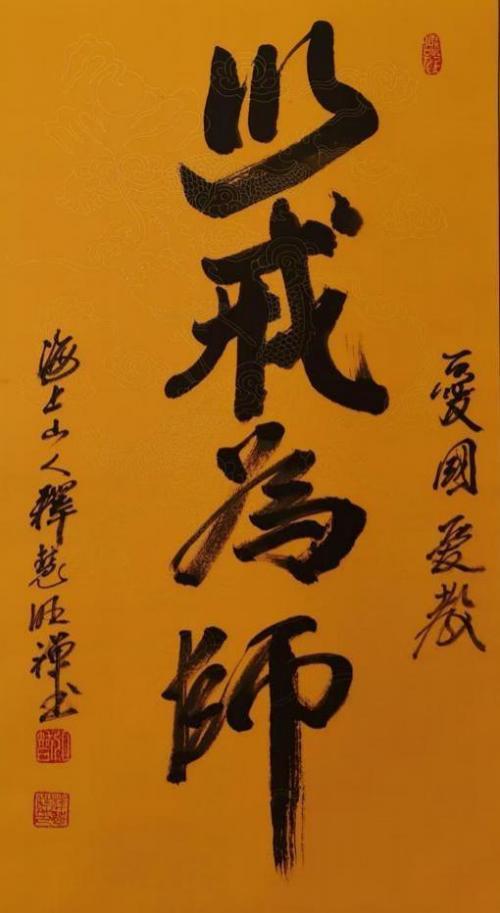 愛國愛教
以戒為師
海上山人釋慧旺禪書